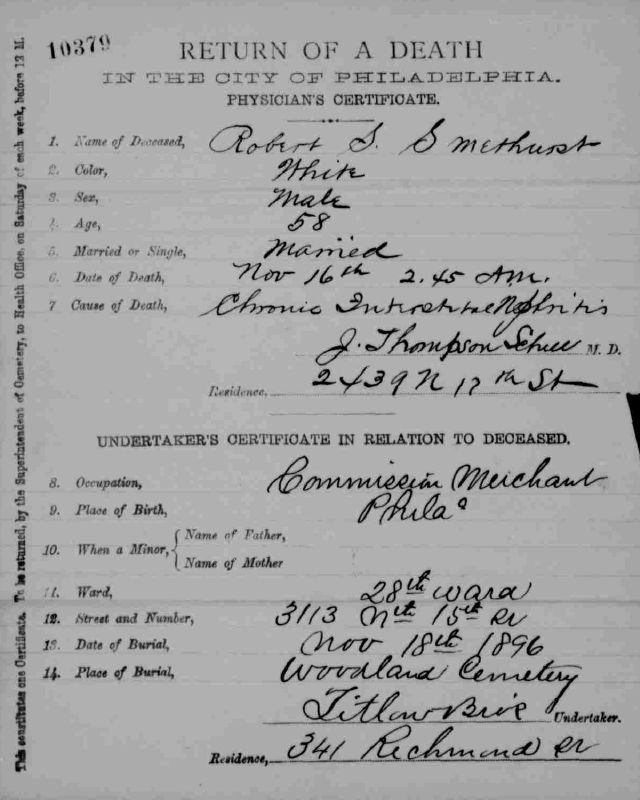 10379
RETURN OF A DEATH
IN THE CITY OF PHILADELPHIA.
PHYSICIAN'S CERTIFICATE.
1. Name of Deceased, Robert S. Smethurst
2. Color, White
3. Sex, Male
4. Age, 58
5. Married or Single, Married
6. Date of Death, Nov 16th 2.45 A.M.
7 Cause of Death, Chronic Interstitial Nephritis
J. Thompson Schell M. D.
Residence, 2439 N 17th St
UNDERTAKER'S CERTIFICATE IN RELATION TO DECEASED.
8. Occupation, Commission Merchant
9. Place of Birth, Phila
10. When a Minor, Name of Father,
Name of Mother
11. Ward, 28th ward
12. Street and Number, 3113 Nth 15th St
13. Date of Burial, Nov 18th 1896
14. Place of Burial, Woodland Cemetery
Titlow Bros Undertaker.
Residence, 341 Richmond St
This constitutes one Certificate. To be returned, by the Superintendent of Cemetery, to Health Office, on Saturday of each week, before 12 M.